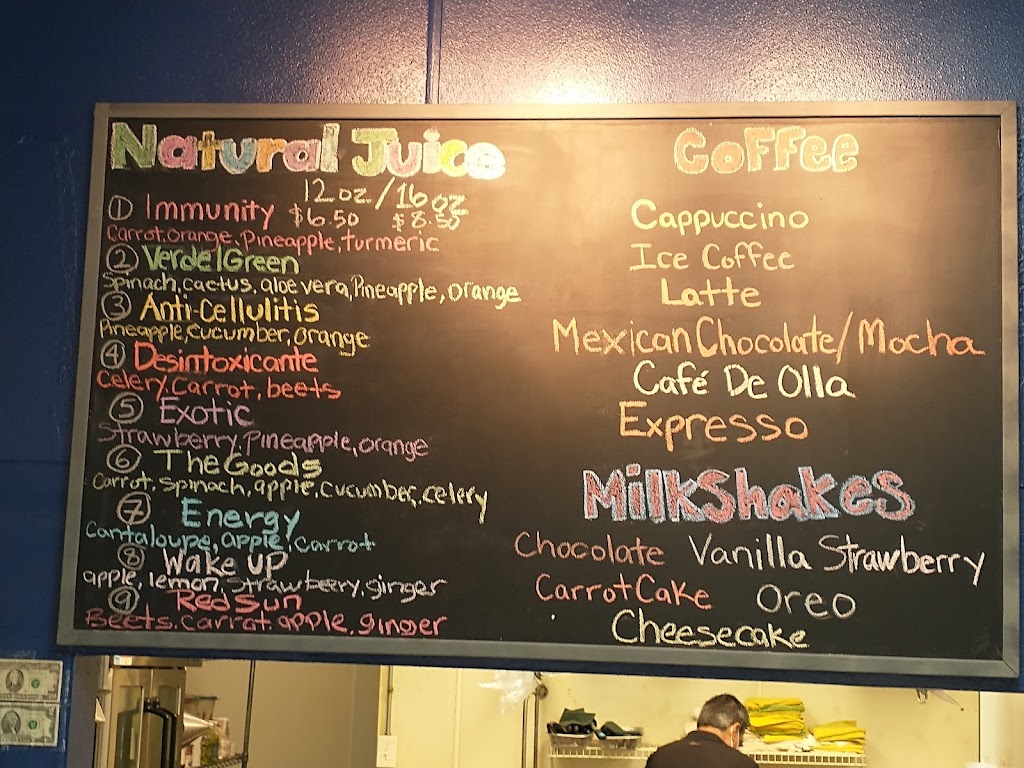 Natural Juice
12oz/16oz
① Immunity $6.50 $8.50
Carrot, orange, Pineapple, turmeric
② Verde|Green
Spinach, cactus, aloe vera, Pineapple, orange
③ Anti-Cellulitis
Pineapple, Cucumber, orange
④ Desintoxicante
Celery, Carrot, beets
⑤ Exotic
Strawberry, Pineapple, orange
⑥ The Goods
Carrot, spinach, apple, cucumber, celery
⑦ Energy
Cantaloupe, apple, carrot
⑧ Wake up
apple, lemon, strawberry, ginger
⑨ Red Sun
Beets, Carrot, apple, ginger
Coffee
Cappuccino
Ice Coffee
Latte
Mexican Chocolate/Mocha
Café De Olla
Expresso
MilkShakes
Chocolate Vanilla Strawberry
Carrot Cake Oreo
Cheesecake